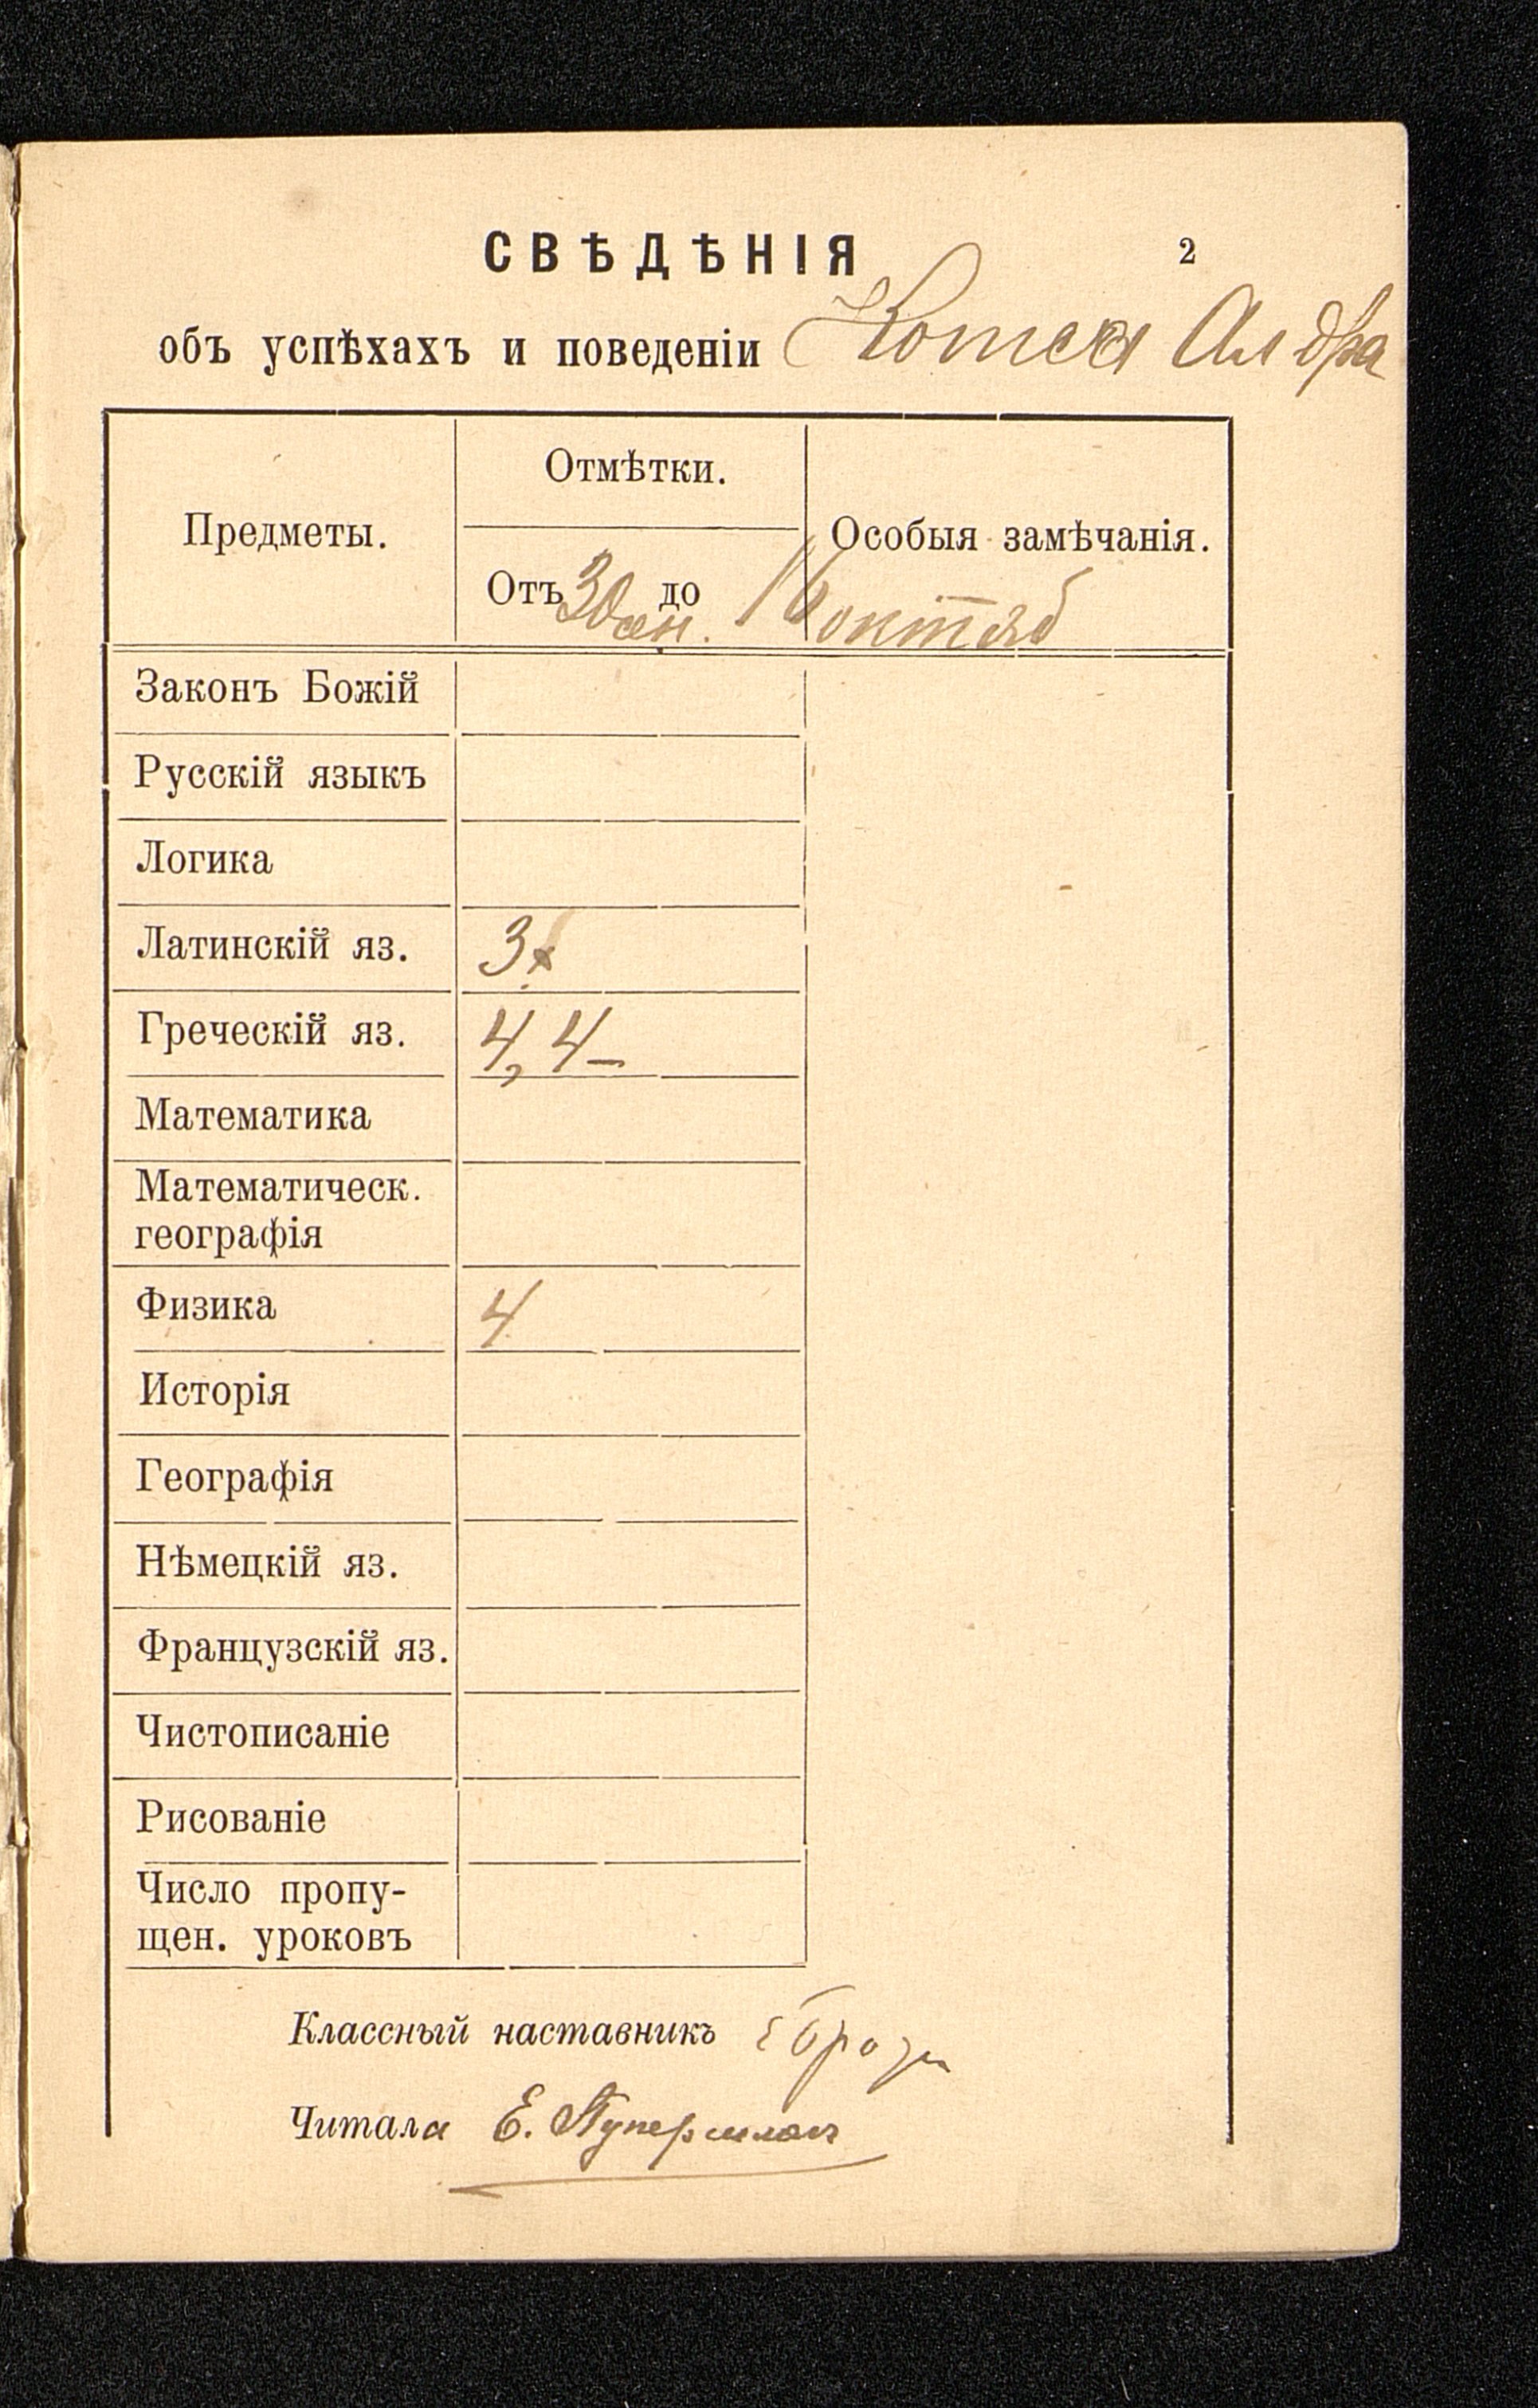 СВѢДѢНІЯ 2
объ успѣхахъ и поведеніи Котса Алдра
Предметы.
Отмѣтки.
Особыя замѣчанія.
Отъ 30 сен. до 16 октяб
Законъ Божій
Русскій языкъ
Логика
Латинскій яз. 3
Греческій яз. 4, 4–
Математика
Математическ.
географія
Физика 4
Исторія
Географія
Нѣмецкій яз.
Французскій яз.
Чистописаніе
Рисованіе
Число пропу-
щен. уроковъ
Классный наставникъ
Читала Е.